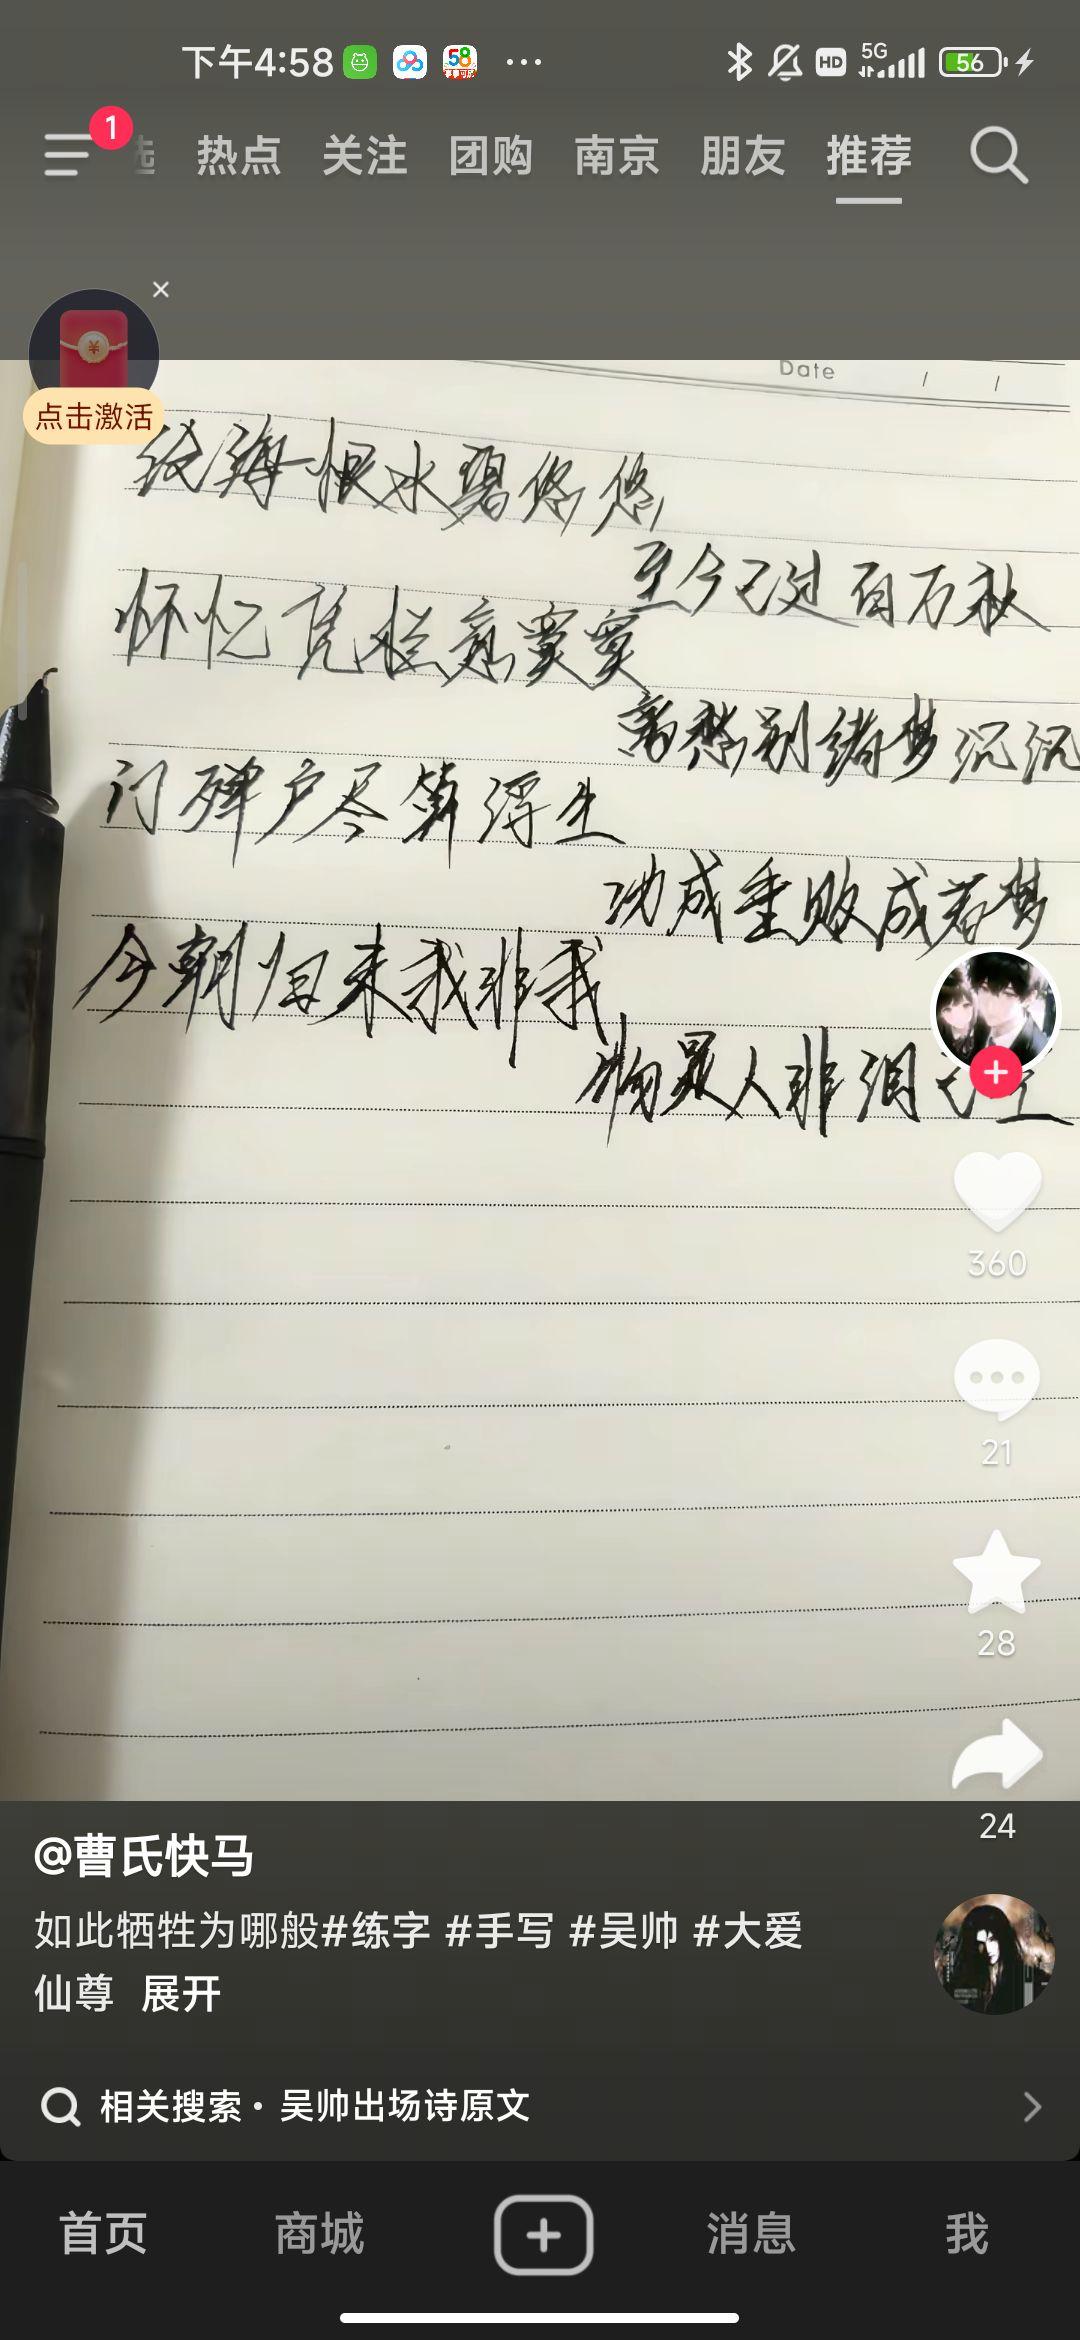 下午4:58
58
HD
5G
56
1
热点 关注 团购 南京 朋友 推荐
点击激活
Date / /
海恨水碧悠悠
至今已过百万秋
怀忆凭栏意寞寞
离愁别绪梦沉沉
门碎户尽算浮生
功成垂败成若梦
今朝归来我非我
物是人非泪
360
21
28
24
@曹氏快马
如此牺牲为哪般#练字 #手写 #吴帅 #大爱
仙尊 展开
相关搜索·吴帅出场诗原文
首页 商城 消息 我